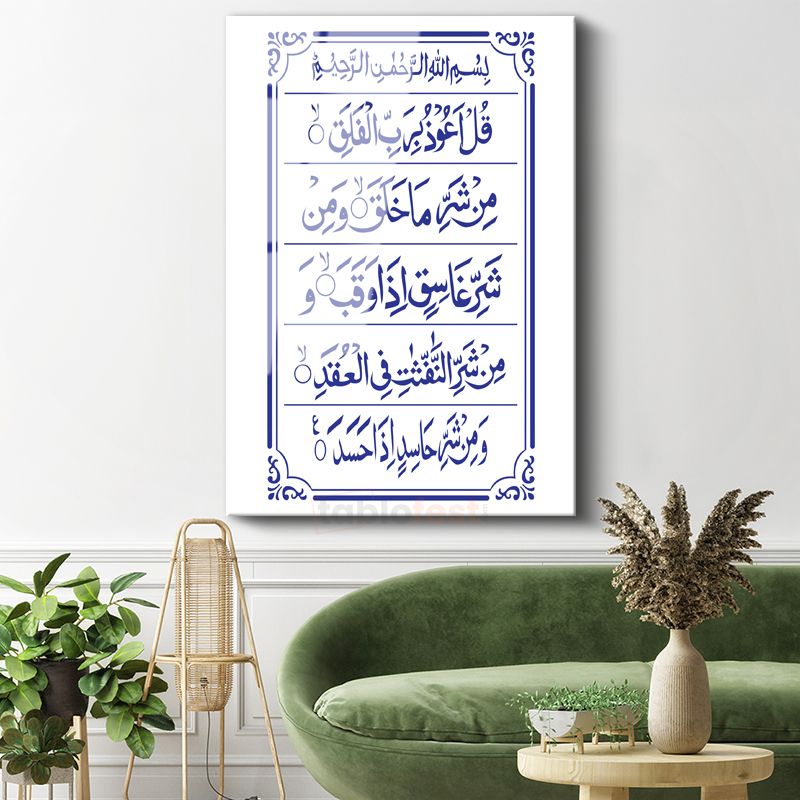 بِسْمِ اللهِ الرَّحْمٰنِ الرَّحِيْمِ
قُلْ اَعُوْذُ بِرَبِّ الْفَلَقِ ۙ
مِنْ شَرِّ مَا خَلَقَ ۙ وَمِنْ
شَرِّ غَاسِقٍ اِذَا وَقَبَ ۙ وَ
مِنْ شَرِّ النَّفّٰثٰتِ فِى الْعُقَدِ ۙ
وَمِنْ شَرِّ حَاسِدٍ اِذَا حَسَدَ ۠
tablofest